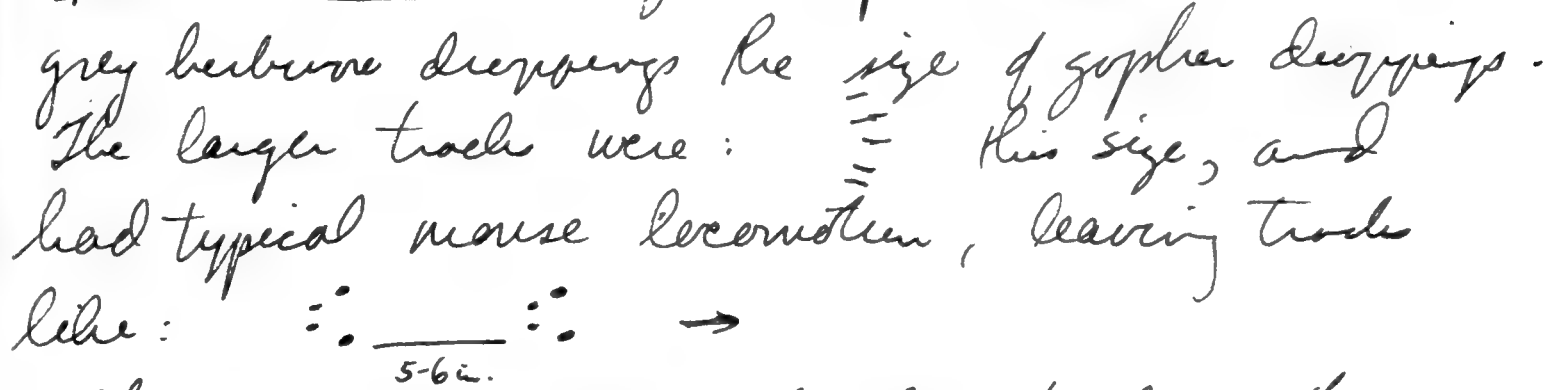 grey herbivore droppings the size of gopher droppings.
The larger tracks were: this size, and
had typical mouse locomotion, leaving tracks
like:
5-6 in.